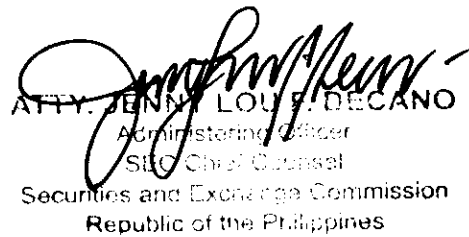 ATTY. JENNY LOU F. DECANO
Administering Officer
SEC Chief Counsel
Securities and Exchange Commission
Republic of the Philippines